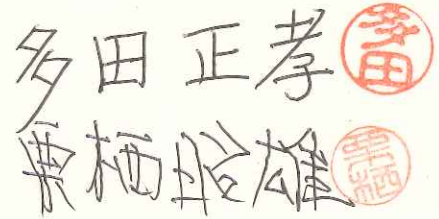 多田 正孝 多田
栗栖昭雄 栗栖